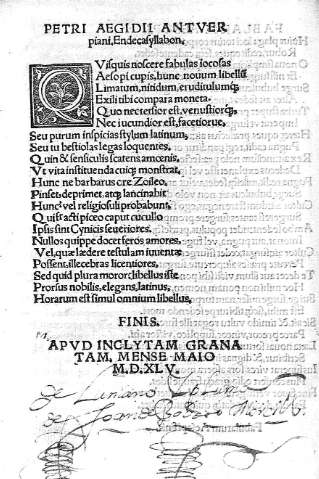 PETRI AEGIDII ANTVER
piani, Endecasyllabon,
QVisquis noscere fabulas iocosas
Aesopi cupis, hunc nouum libellũ
Limatum, nitidum, eruditulumq;
Exili tibi compara moneta.
Quo nec tersior est, venustiorq;
Nec iucundior est, facetiorue,
Seu purum inspicias stylum latinum,
Seu tu bestiolas legas loquentes,
Quin & sensiculis scatens amœnis,
Vt vita instituenda cuiq; monstrat,
Hunc ne barbarus ore Zoileo,
Pinset, deprimet. atq; lancinabit
Hunc vel religiosuli probabunt,
Quist acti piceo caput cucullo
Ipsis sint Cynicis seueriores.
Nullos quippe docet feros amores,
Vel, quæ lædere testulam iuuentæ
Possent, illecebras licentiores,
Sed quid plura moror? libellus iste
Prorsus nobilis, elegans, latinus,
Horarum est simul omnium libellus,
FINIS.
APVD INCLYTAM GRANA
TAM, MENSE MAIO
M.D.XLV.